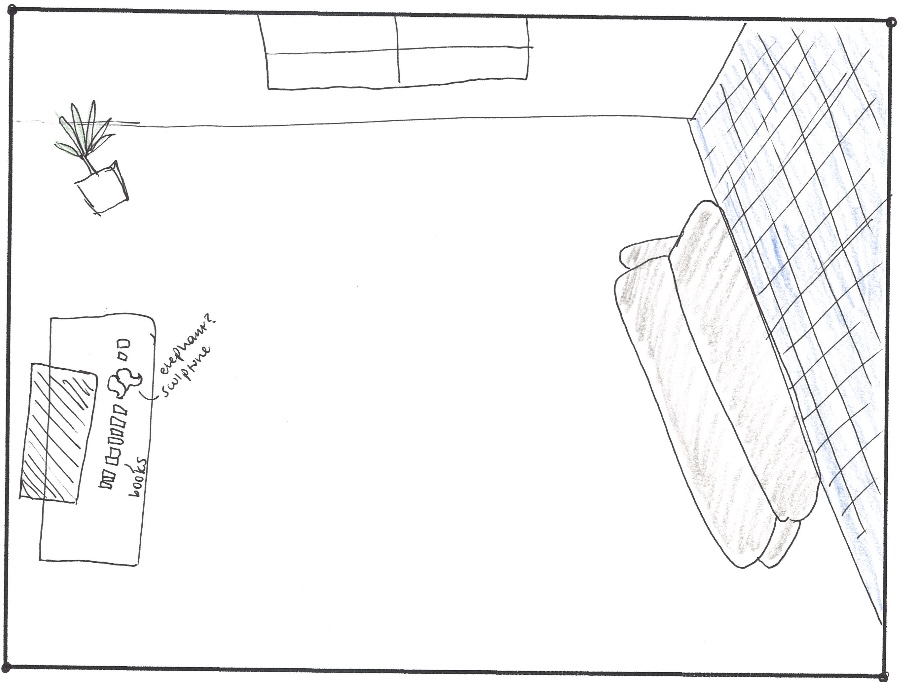 elephant?
sculpture
books